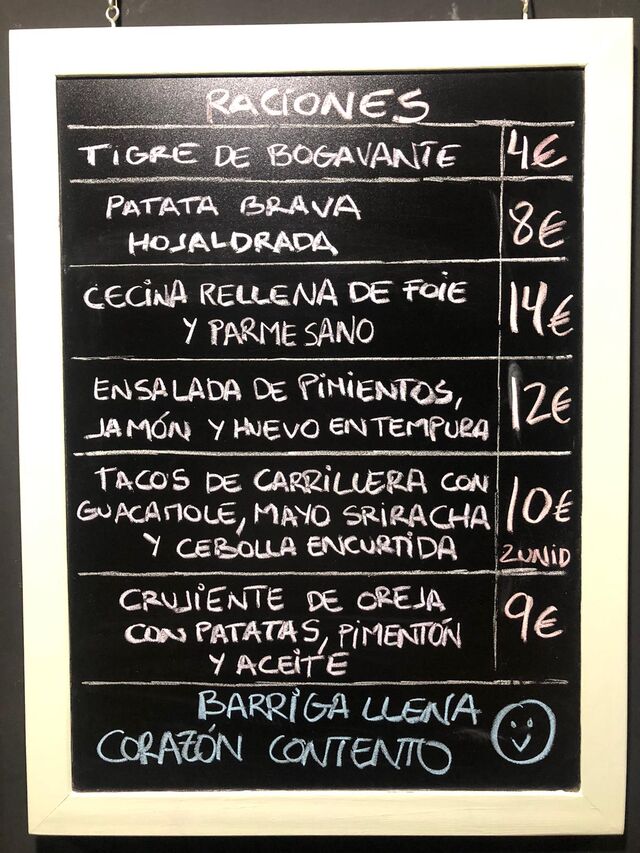 RACIONES
TIGRE DE BOGAVANTE 4€
PATATA BRAVA
HOJALDRADA 8€
CECINA RELLENA DE FOIE
Y PARMESANO 14€
ENSALADA DE PIMIENTOS,
JAMÓN Y HUEVO EN TEMPURA 12€
TACOS DE CARRILLERA CON
GUACAMOLE, MAYO SRIRACHA 10€
Y CEBOLLA ENCURTIDA 2UNID
CRUJIENTE DE OREJA
CON PATATAS, PIMENTÓN 9€
Y ACEITE
BARRIGA LLENA
CORAZÓN CONTENTO